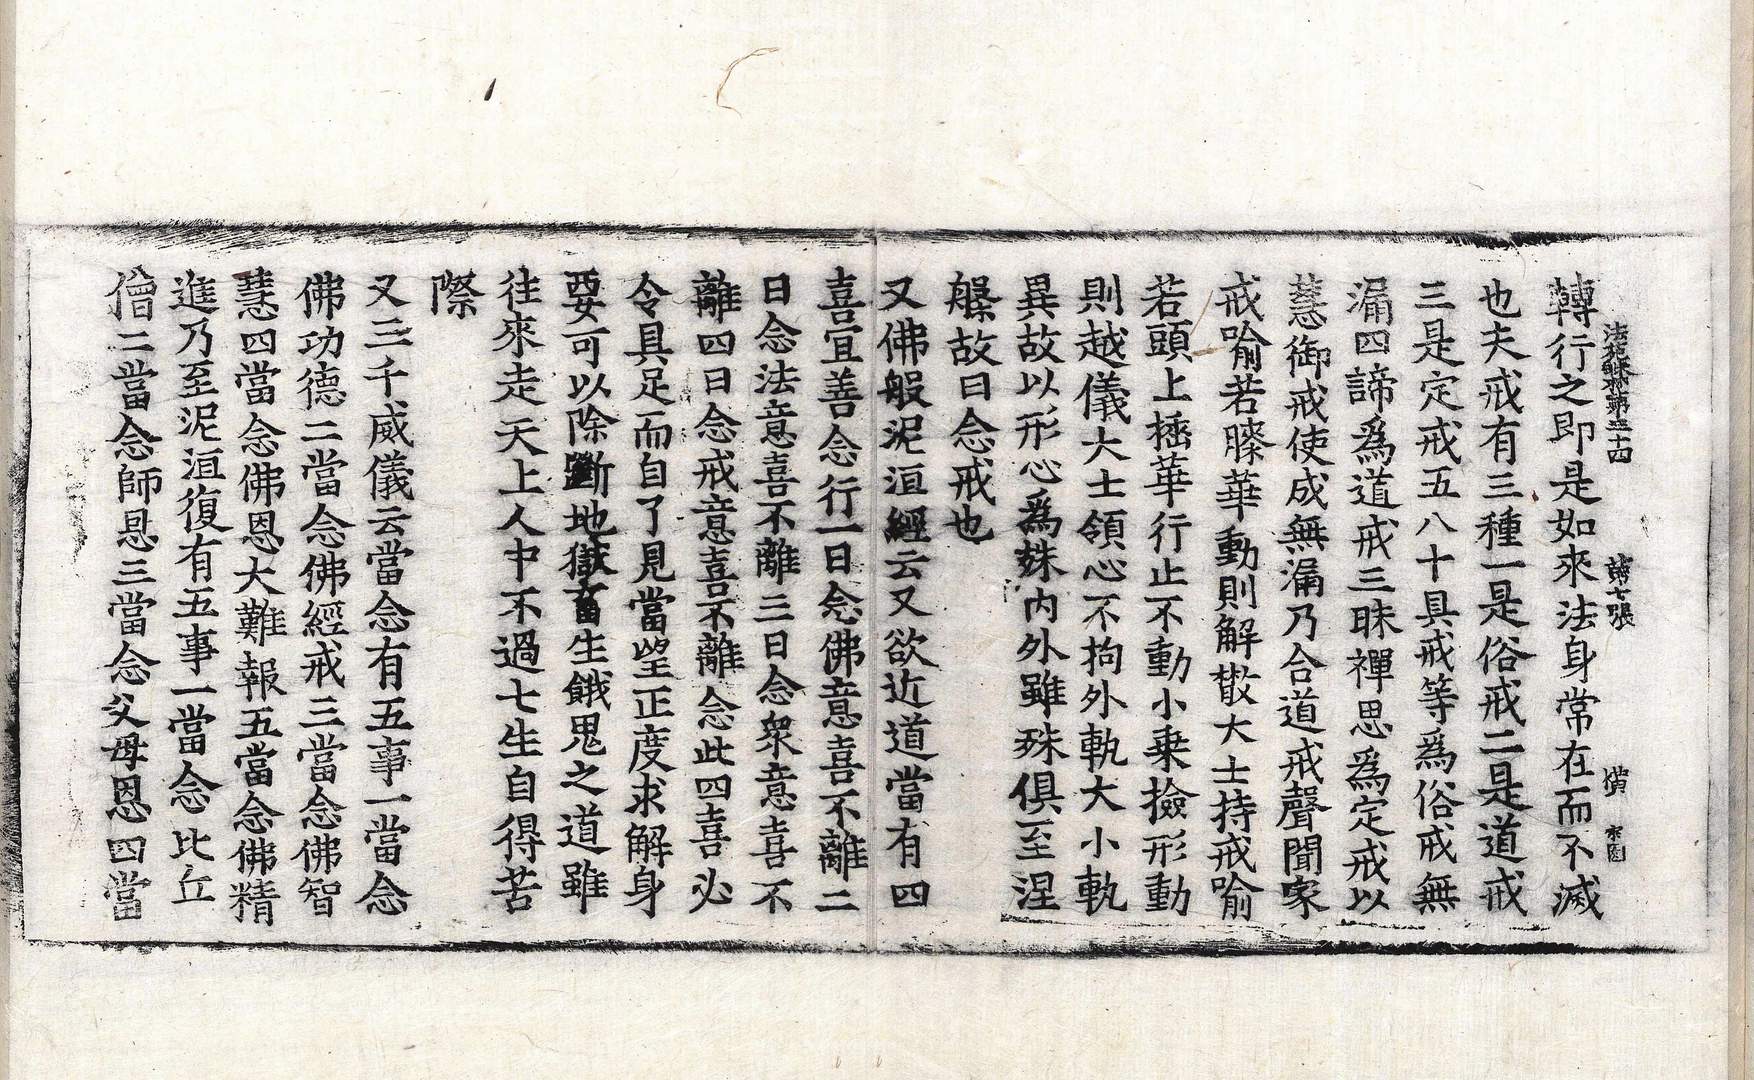 法苑珠林第三十四 第七張 橫
轉行之即是如來法身常在而不滅
也夫戒有三種一是俗戒二是道戒
三是定戒五八十具戒等爲俗戒無
漏四諦爲道戒三昧禪思爲定戒以
慧御戒使成無漏乃合道戒聲聞家
戒喻若膝華動則解散大士持戒喻
若頭上插華行止不動小乗撿形動
則越儀大士領心不拘外軌大小軌
異故以形心爲殊内外雖殊俱至涅
槃故曰念戒也
又佛般泥洹經云又欲近道當有四
喜宜善念行一曰念佛意喜不離二
曰念法意喜不離三曰念衆意喜不
離四曰念戒意喜不離念此四喜必
令具足而自了見當望正度求解身
要可以除斷地獄畜生餓鬼之道雖
往來走天上人中不過七生自得苦
際
又三千威儀云當念有五事一當念
佛功德二當念佛經戒三當念佛智
慧四當念佛恩大難報五當念佛精
進乃至泥洹復有五事一當念比丘
僧二當念師恩三當念父母恩四當